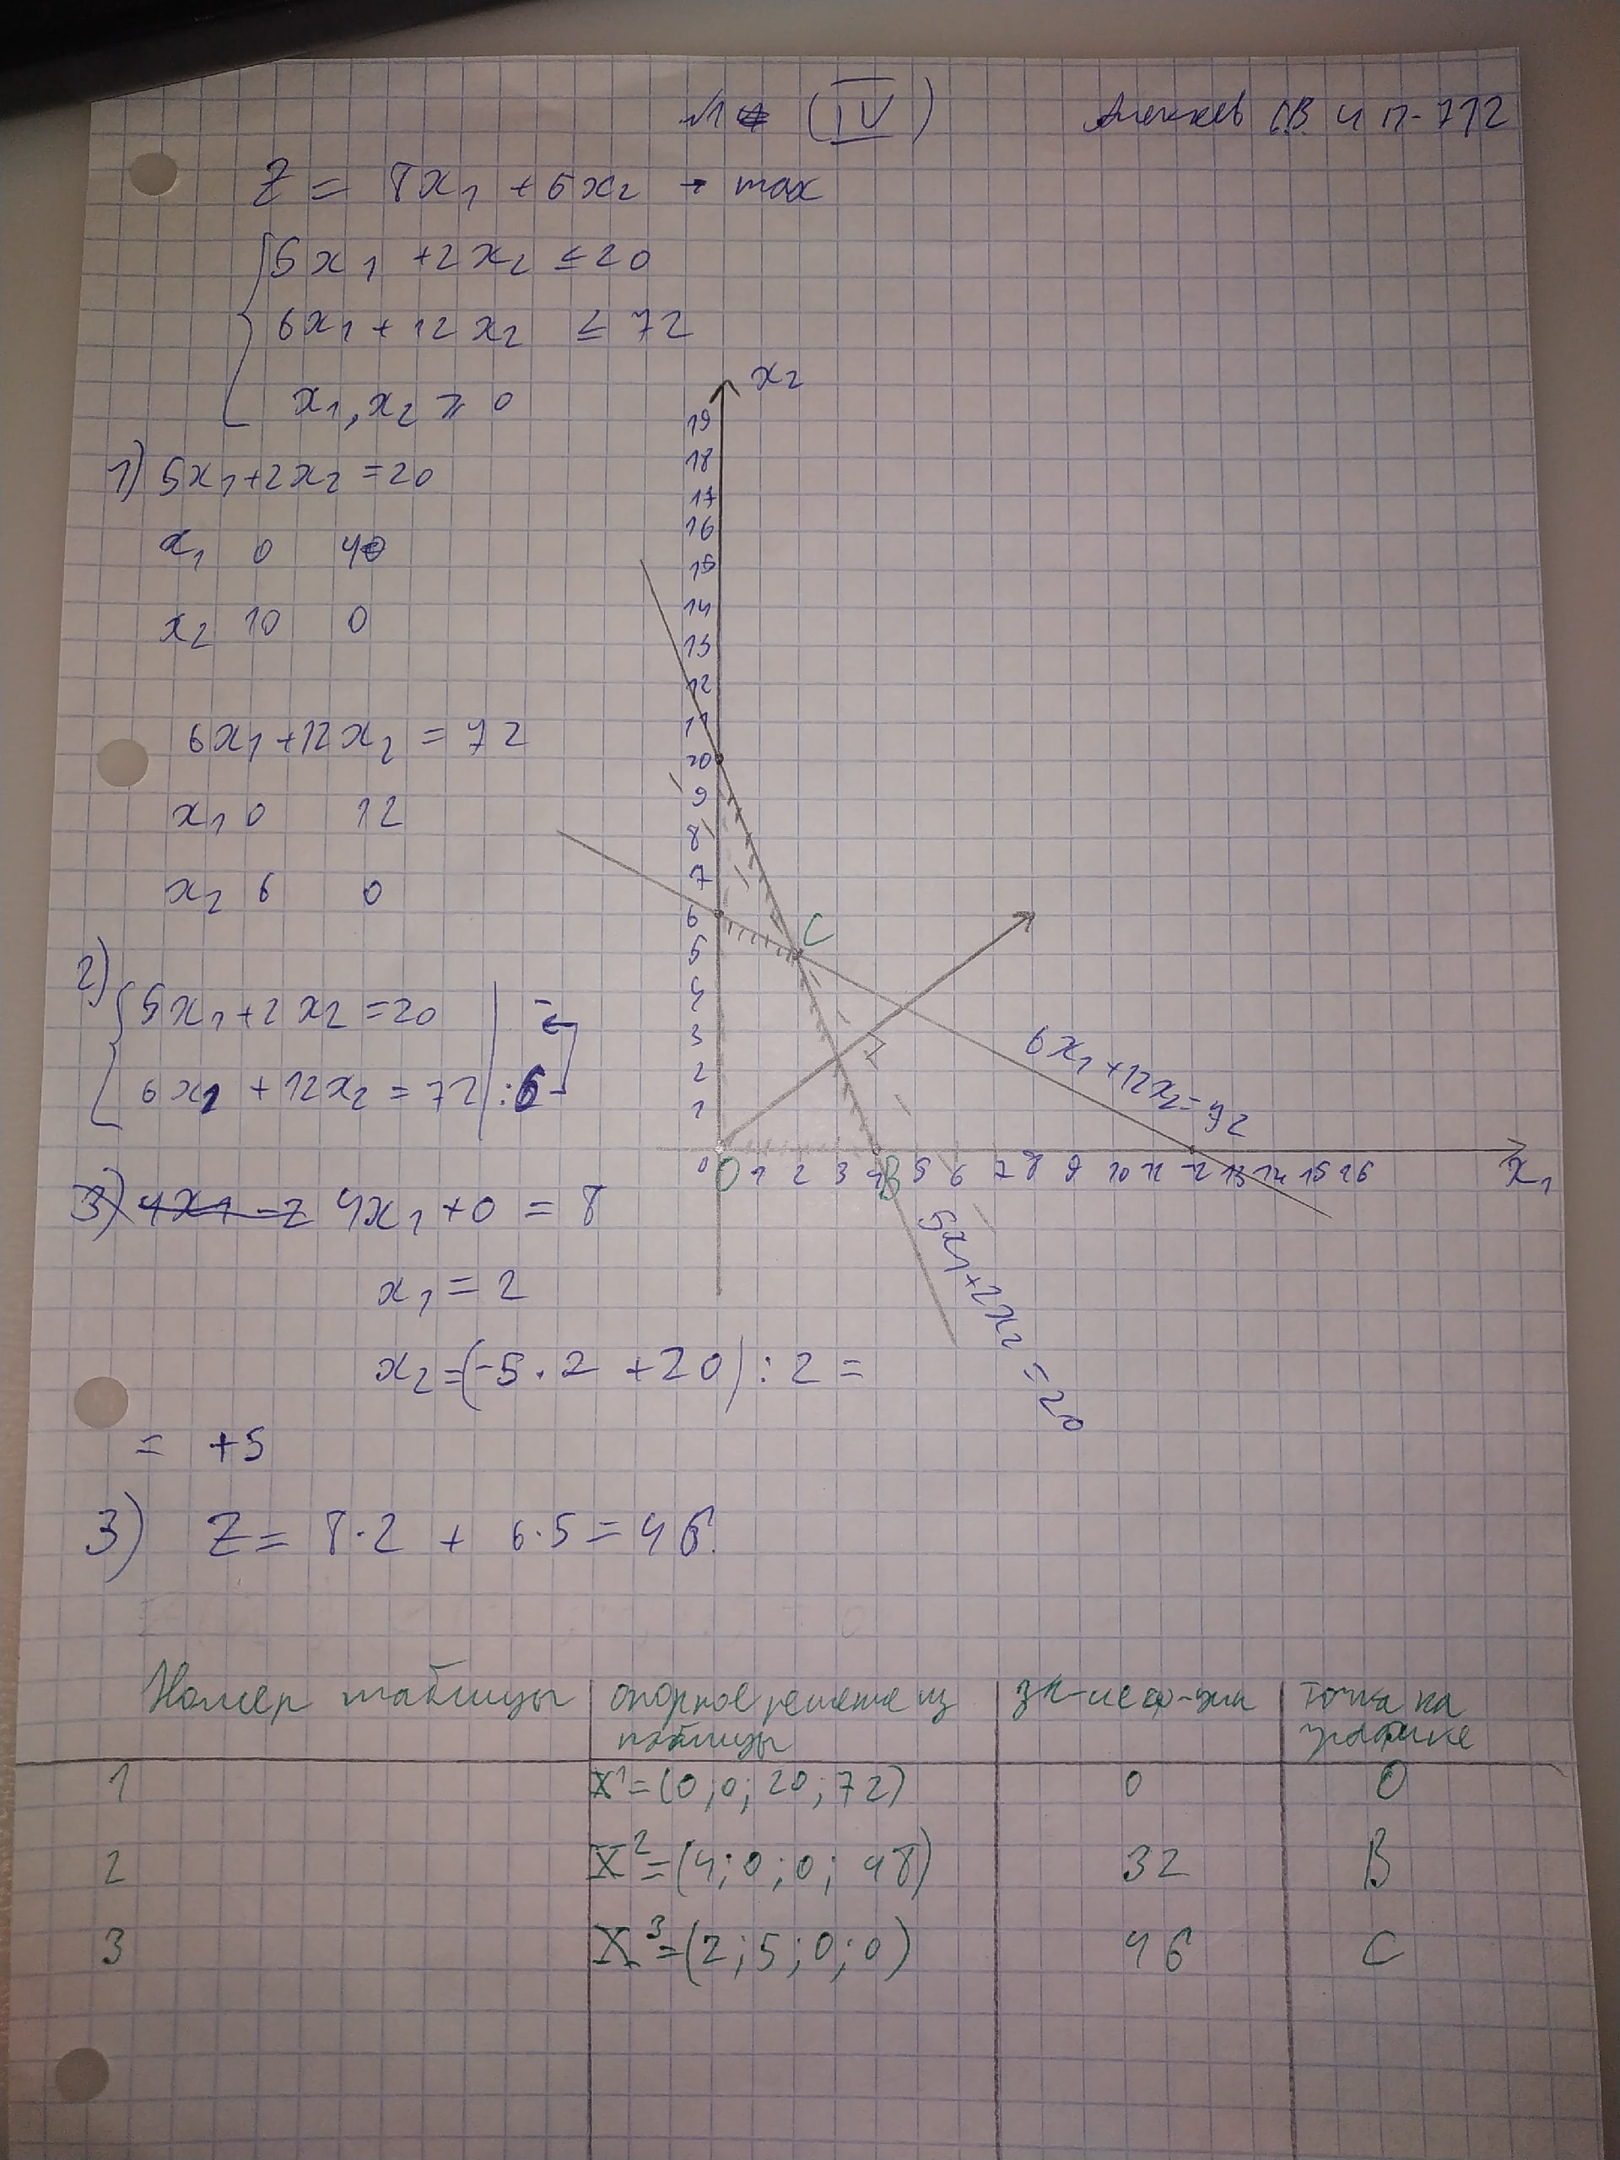 (IV)
ИП-712
Z = 8x₁ + 6x₂ → max
5x₁ + 2x₂ ≤ 20
6x₁ + 12x₂ ≤ 72
x₁, x₂ ≥ 0
1) 5x₁ + 2x₂ = 20
x₁ 0 4
x₂ 10 0
6x₁ + 12x₂ = 72
x₁ 0 12
x₂ 6 0
2)
5x₁ + 2x₂ = 20 | -
6x₁ + 12x₂ = 72 | :6
4x₁ + 0 = 8
x₁ = 2
x₂ = (-5·2 + 20) : 2 =
= +5
3) Z = 8·2 + 6·5 = 46
x₂
19
18
17
16
15
14
13
12
11
20
9
8
7
6
5
4
3
2
1
C
6x₁ + 12x₂ = 72
0 O 1 2 3 4 B 5 6 7 8 9 10 11 12 13 14 15 26 x₁
5x₁ + 2x₂ = 20
Номер таблицы | опорное решение из таблицы | зн-ие ф-ции | точка на графике
1 | X¹ = (0; 0; 20; 72) | 0 | O
2 | X² = (4; 0; 0; 48) | 32 | B
3 | X³ = (2; 5; 0; 0) | 46 | C